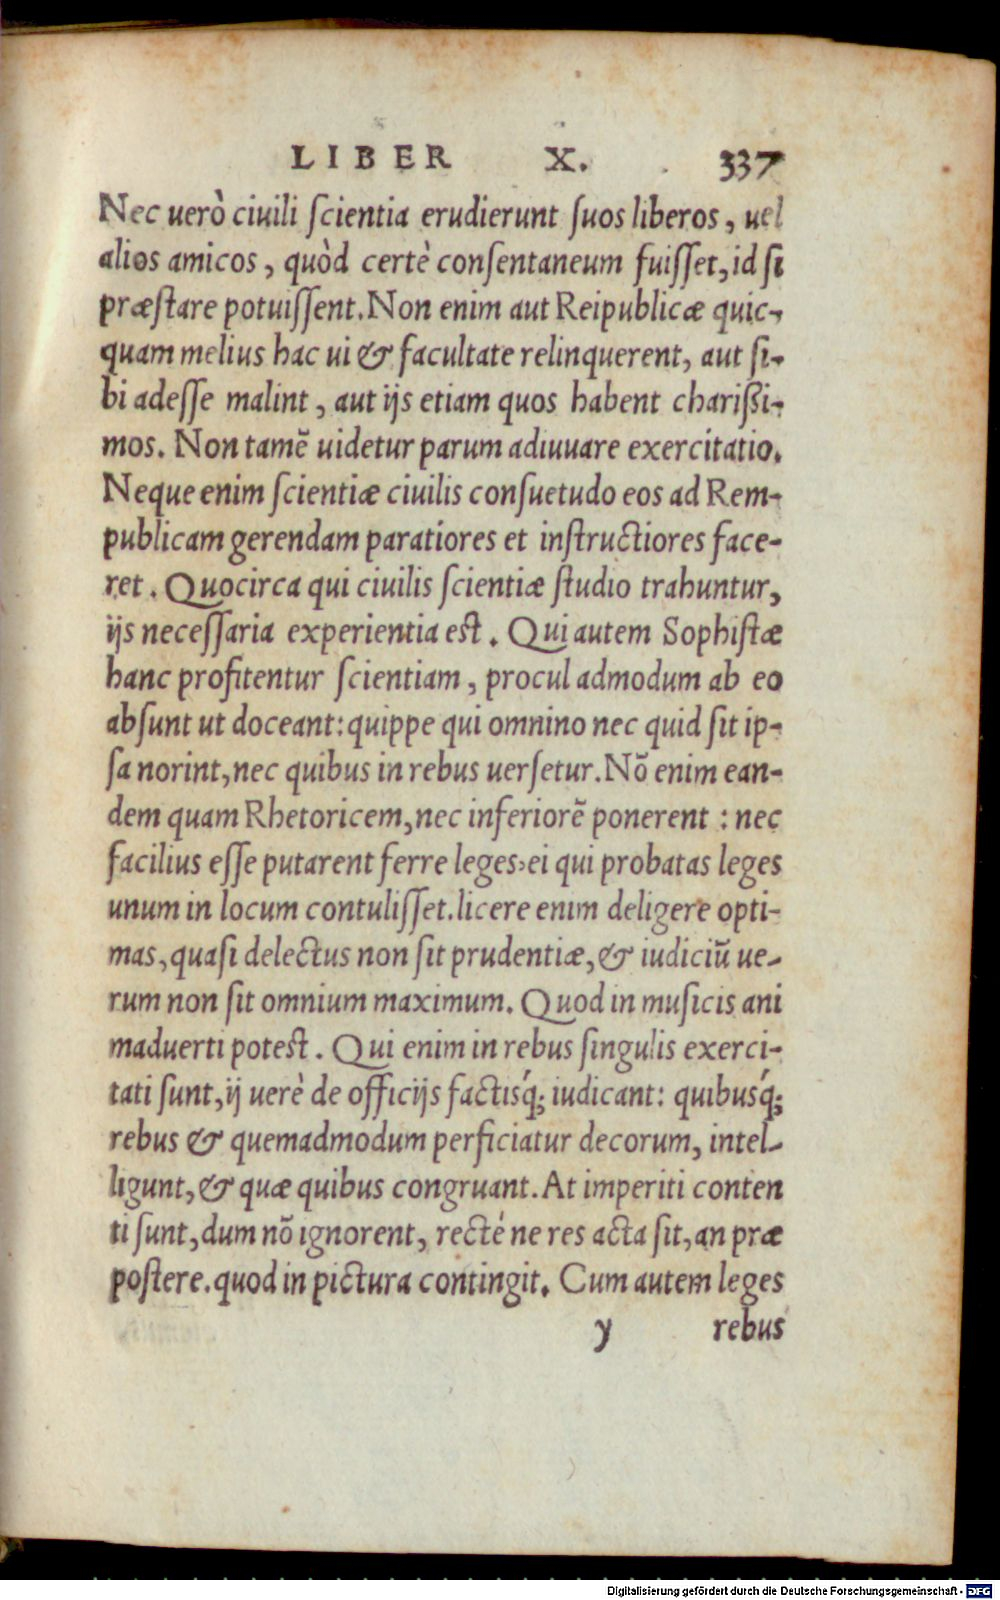 LIBER X. 337
Nec uerò ciuili ſcientia erudierunt ſuos liberos, uel
alios amicos, quòd certè conſentaneum fuiſſet, id ſi
præſtare potuiſſent. Non enim aut Reipublicæ quic-
quam melius hac ui & facultate relinquerent, aut ſi-
bi adeſſe malint, aut ijs etiam quos habent chariſsi-
mos. Non tamẽ uidetur parum adiuuare exercitatio.
Neque enim ſcientiæ ciuilis conſuetudo eos ad Rem-
publicam gerendam paratiores et inſtructiores face-
ret. Quocirca qui ciuilis ſcientiæ ſtudio trahuntur,
ijs neceſſaria experientia eſt. Qui autem Sophiſtæ
hanc profitentur ſcientiam, procul admodum ab eo
abſunt ut doceant: quippe qui omnino nec quid ſit ip-
ſa norint, nec quibus in rebus uerſetur. Nõ enim ean-
dem quam Rhetoricem, nec inferiorẽ ponerent: nec
facilius eſſe putarent ferre leges, ei qui probatas leges
unum in locum contuliſſet. licere enim deligere opti-
mas, quaſi delectus non ſit prudentiæ, & iudiciũ ue-
rum non ſit omnium maximum. Quod in muſicis ani
maduerti poteſt. Qui enim in rebus ſingulis exerci-
tati ſunt, ij uerè de officijs factisq́; iudicant: quibusq́;
rebus & quemadmodum perficiatur decorum, intel-
ligunt, & quæ quibus congruant. At imperiti conten
ti ſunt, dum nõ ignorent, recté ne res acta ſit, an præ
poſtere. quod in pictura contingit. Cum autem leges
y rebus
Digitalisierung gefördert durch die Deutsche Forschungsgemeinschaft - DFG